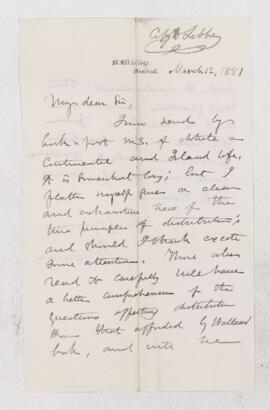 McGill College,
Montreal,
March 12, 1881
My dear Sir,
I now send by
book-post M.S. of Article on
Continental and Island Life.
It is somewhat long; but I
flatter myself gives a clear
and exhaustive view of the
true principles of distribution;
and should I think excite
some attention. Those who
read it carefully will have
a better comprehension of the
questions affecting distribution
than that afforded by Wallace's
book, and with